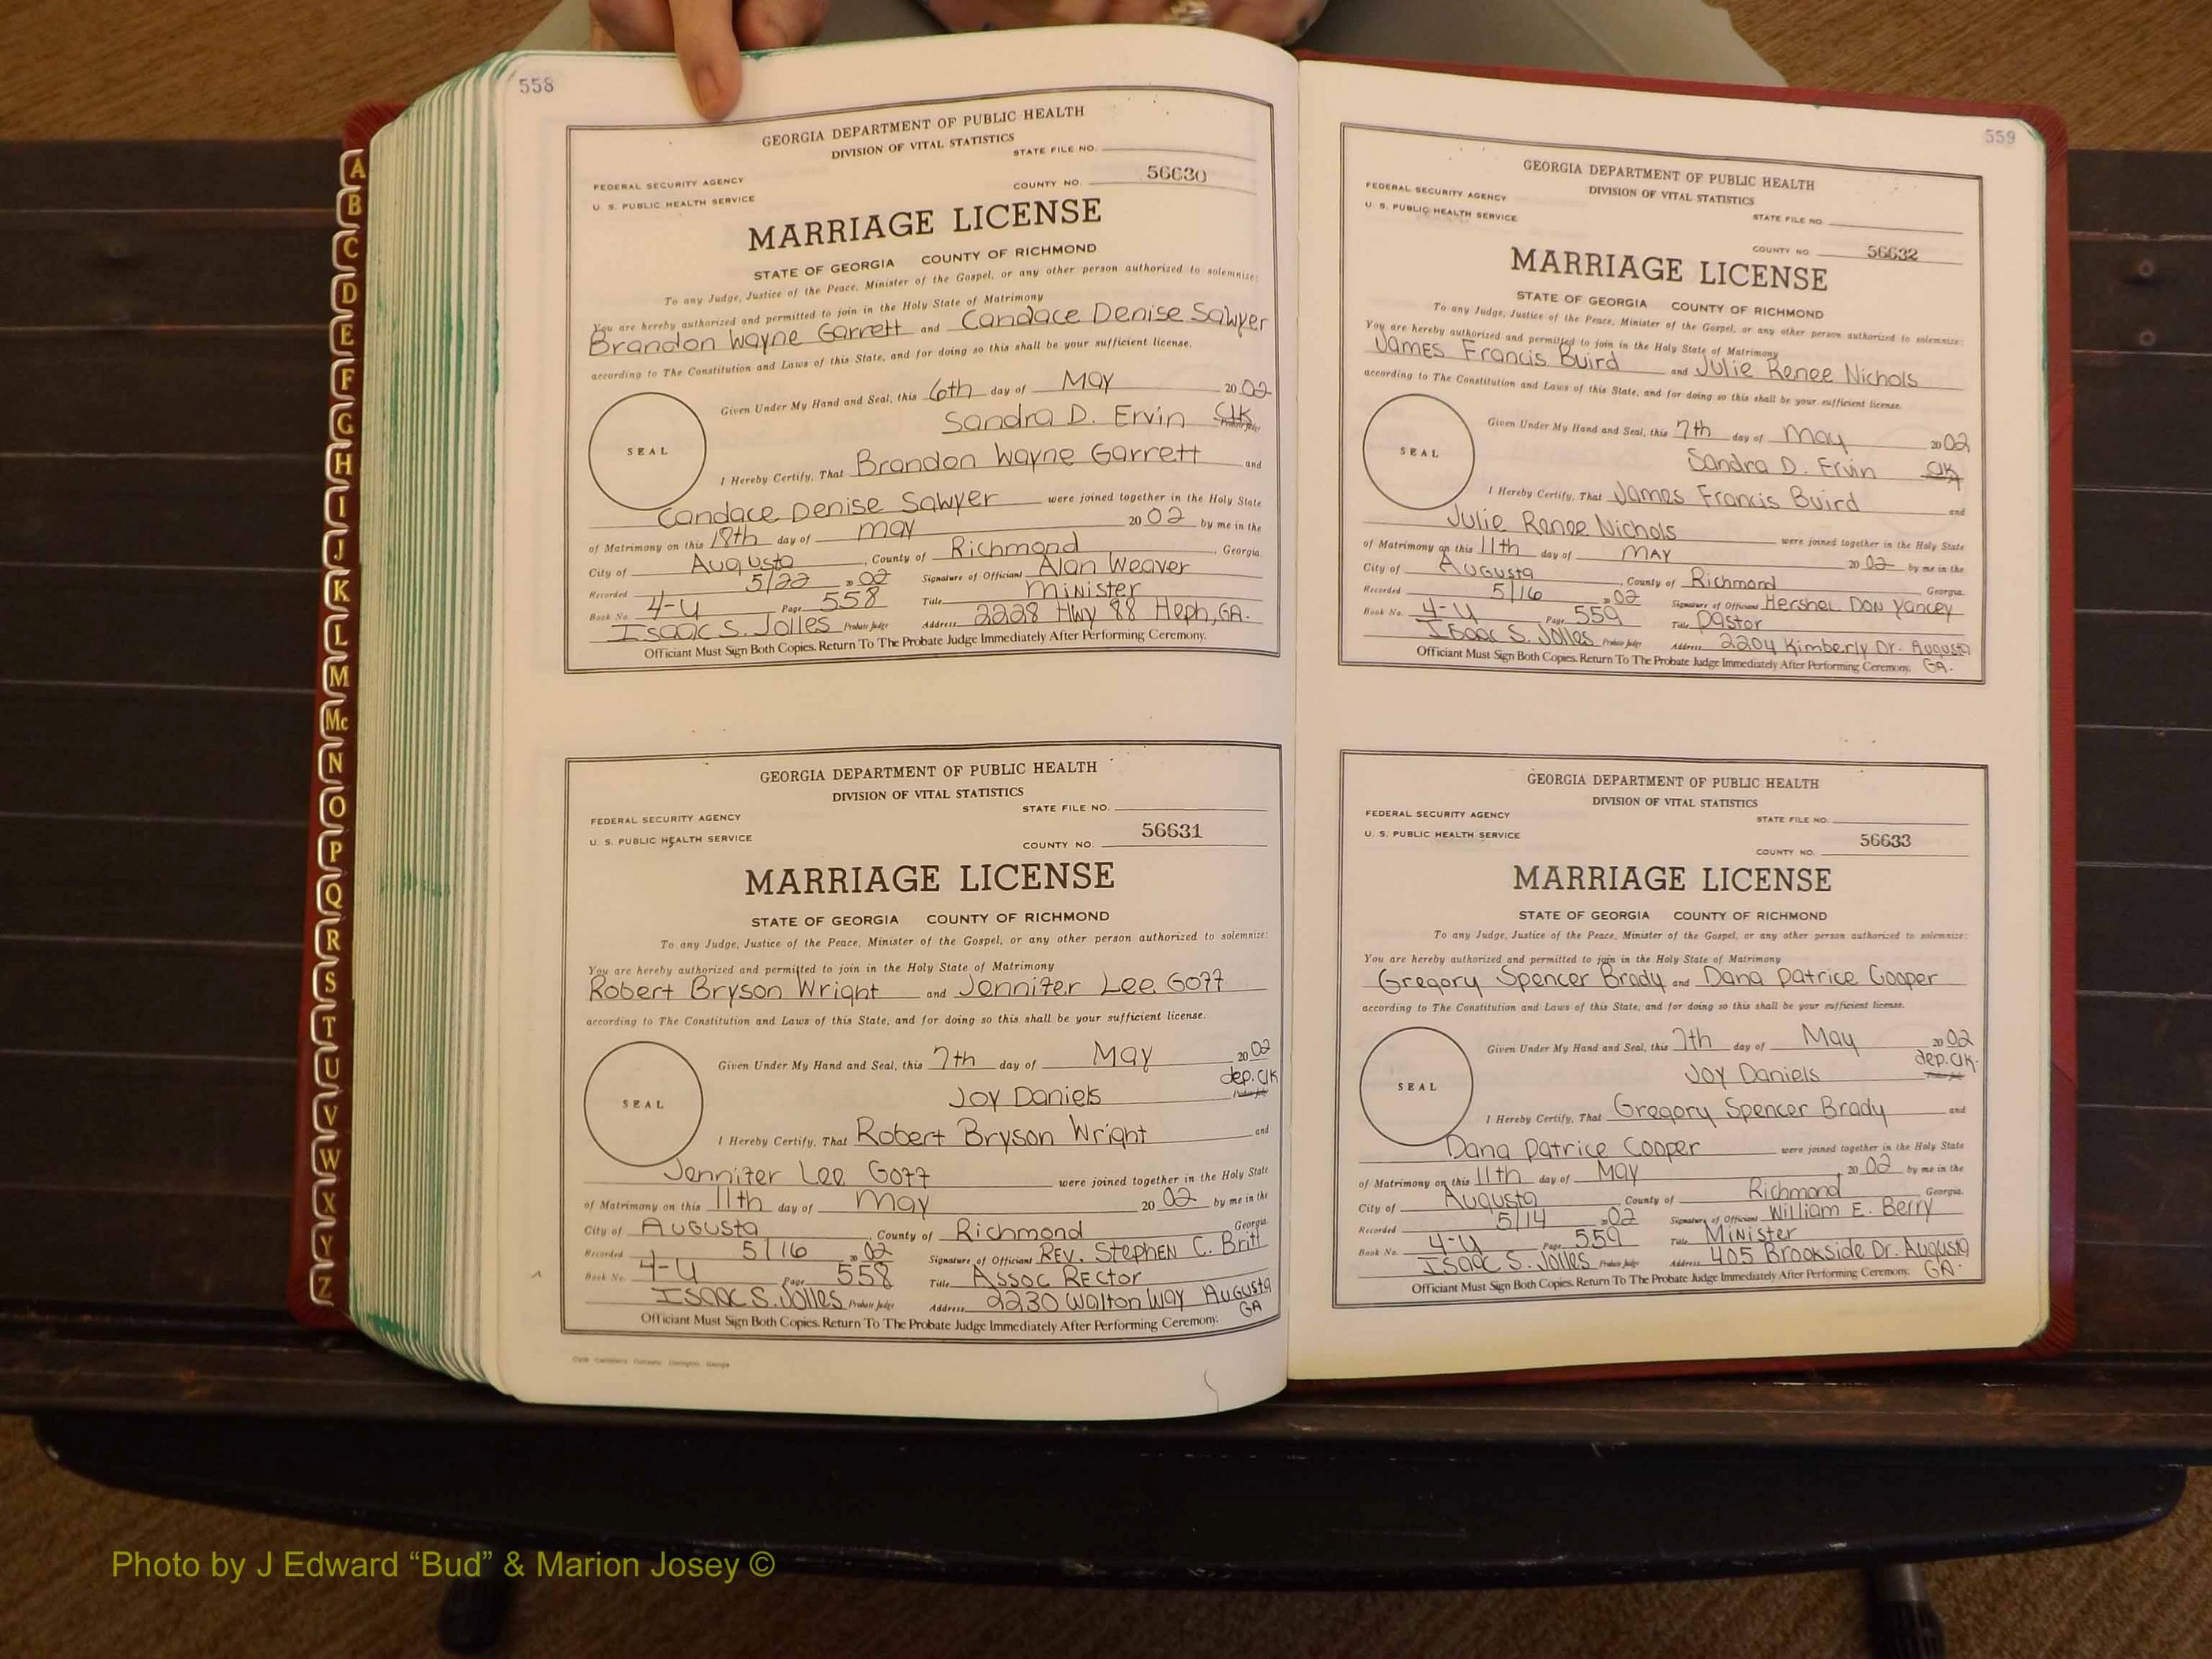 558
GEORGIA DEPARTMENT OF PUBLIC HEALTH
DIVISION OF VITAL STATISTICS
STATE FILE NO.
FEDERAL SECURITY AGENCY
U. S. PUBLIC HEALTH SERVICE
COUNTY NO. 56630
MARRIAGE LICENSE
STATE OF GEORGIA COUNTY OF RICHMOND
To any Judge, Justice of the Peace, Minister of the Gospel, or any other person authorized to solemnize:
You are hereby authorized and permitted to join in the Holy State of Matrimony
Brandon Wayne Garrett and Candace Denise Sawyer
according to The Constitution and Laws of this State, and for doing so this shall be your sufficient license.
Given Under My Hand and Seal, this 6th day of May 2002
Sandra D. Ervin Clk
SEAL
I Hereby Certify, That Brandon Wayne Garrett and
Candace Denise Sawyer were joined together in the Holy State
of Matrimony on this 18th day of May 2002 by me in the
City of Augusta, County of Richmond, Georgia.
Recorded 5/22 2002 Signature of Officiant Alan Weaver
Book No. 4-U Page 558 Title Minister
Isaac S. Jolles Probate Judge Address 2228 Hwy 88 Heph, GA.
Officiant Must Sign Both Copies. Return To The Probate Judge Immediately After Performing Ceremony.
GEORGIA DEPARTMENT OF PUBLIC HEALTH
DIVISION OF VITAL STATISTICS
STATE FILE NO.
FEDERAL SECURITY AGENCY
U. S. PUBLIC HEALTH SERVICE
COUNTY NO. 56631
MARRIAGE LICENSE
STATE OF GEORGIA COUNTY OF RICHMOND
To any Judge, Justice of the Peace, Minister of the Gospel, or any other person authorized to solemnize:
You are hereby authorized and permitted to join in the Holy State of Matrimony
Robert Bryson Wright and Jennifer Lee Goff
according to The Constitution and Laws of this State, and for doing so this shall be your sufficient license.
Given Under My Hand and Seal, this 7th day of May 2002
Joy Daniels dep. Clk
SEAL
I Hereby Certify, That Robert Bryson Wright and
Jennifer Lee Goff were joined together in the Holy State
of Matrimony on this 11th day of May 2002 by me in the
City of Augusta, County of Richmond Georgia.
Recorded 5/16 2002 Signature of Officiant Rev. Stephen C. Britt
Book No. 4-U Page 558 Title Assoc Rector
Isaac S. Jolles Probate Judge Address 2230 Walton Way Augusta GA
Officiant Must Sign Both Copies. Return To The Probate Judge Immediately After Performing Ceremony.
559
GEORGIA DEPARTMENT OF PUBLIC HEALTH
DIVISION OF VITAL STATISTICS
FEDERAL SECURITY AGENCY
U. S. PUBLIC HEALTH SERVICE
STATE FILE NO.
COUNTY NO. 56632
MARRIAGE LICENSE
STATE OF GEORGIA COUNTY OF RICHMOND
To any Judge, Justice of the Peace, Minister of the Gospel, or any other person authorized to solemnize:
You are hereby authorized and permitted to join in the Holy State of Matrimony
James Francis Buird and Julie Renee Nichols
according to The Constitution and Laws of this State, and for doing so this shall be your sufficient license.
Given Under My Hand and Seal, this 7th day of May 2002
Sandra D. Ervin Clk
SEAL
I Hereby Certify, That James Francis Buird and
Julie Renee Nichols were joined together in the Holy State
of Matrimony on this 11th day of May 2002 by me in the
City of Augusta, County of Richmond Georgia.
Recorded 5/16 2002 Signature of Officiant Hershel Don Yancey
Book No. 4-U Page 559 Title Pastor
Isaac S. Jolles Probate Judge Address 2204 Kimberly Dr. Augusta GA.
Officiant Must Sign Both Copies. Return To The Probate Judge Immediately After Performing Ceremony.
GEORGIA DEPARTMENT OF PUBLIC HEALTH
DIVISION OF VITAL STATISTICS
FEDERAL SECURITY AGENCY
STATE FILE NO.
U. S. PUBLIC HEALTH SERVICE
COUNTY NO. 56633
MARRIAGE LICENSE
STATE OF GEORGIA COUNTY OF RICHMOND
To any Judge, Justice of the Peace, Minister of the Gospel, or any other person authorized to solemnize:
You are hereby authorized and permitted to join in the Holy State of Matrimony
Gregory Spencer Brady and Dana Patrice Cooper
according to The Constitution and Laws of this State, and for doing so this shall be your sufficient license.
Given Under My Hand and Seal, this 7th day of May 2002
Joy Daniels dep. Clk.
SEAL
I Hereby Certify, That Gregory Spencer Brady and
Dana Patrice Cooper were joined together in the Holy State
of Matrimony on this 11th day of May 2002 by me in the
City of Augusta, County of Richmond, Georgia.
Recorded 5/14 2002 Signature of Officiant William E. Berry
Book No. 4-U Page 559 Title Minister
Isaac S. Jolles Probate Judge Address 405 Brookside Dr. Augusta GA.
Officiant Must Sign Both Copies. Return To The Probate Judge Immediately After Performing Ceremony.
A
B
C
D
E
F
G
H
I
J
K
L
M
Mc
N
O
P
Q
R
S
T
U
V
W
X
Y
Z
Photo by J Edward “Bud” & Marion Josey ©